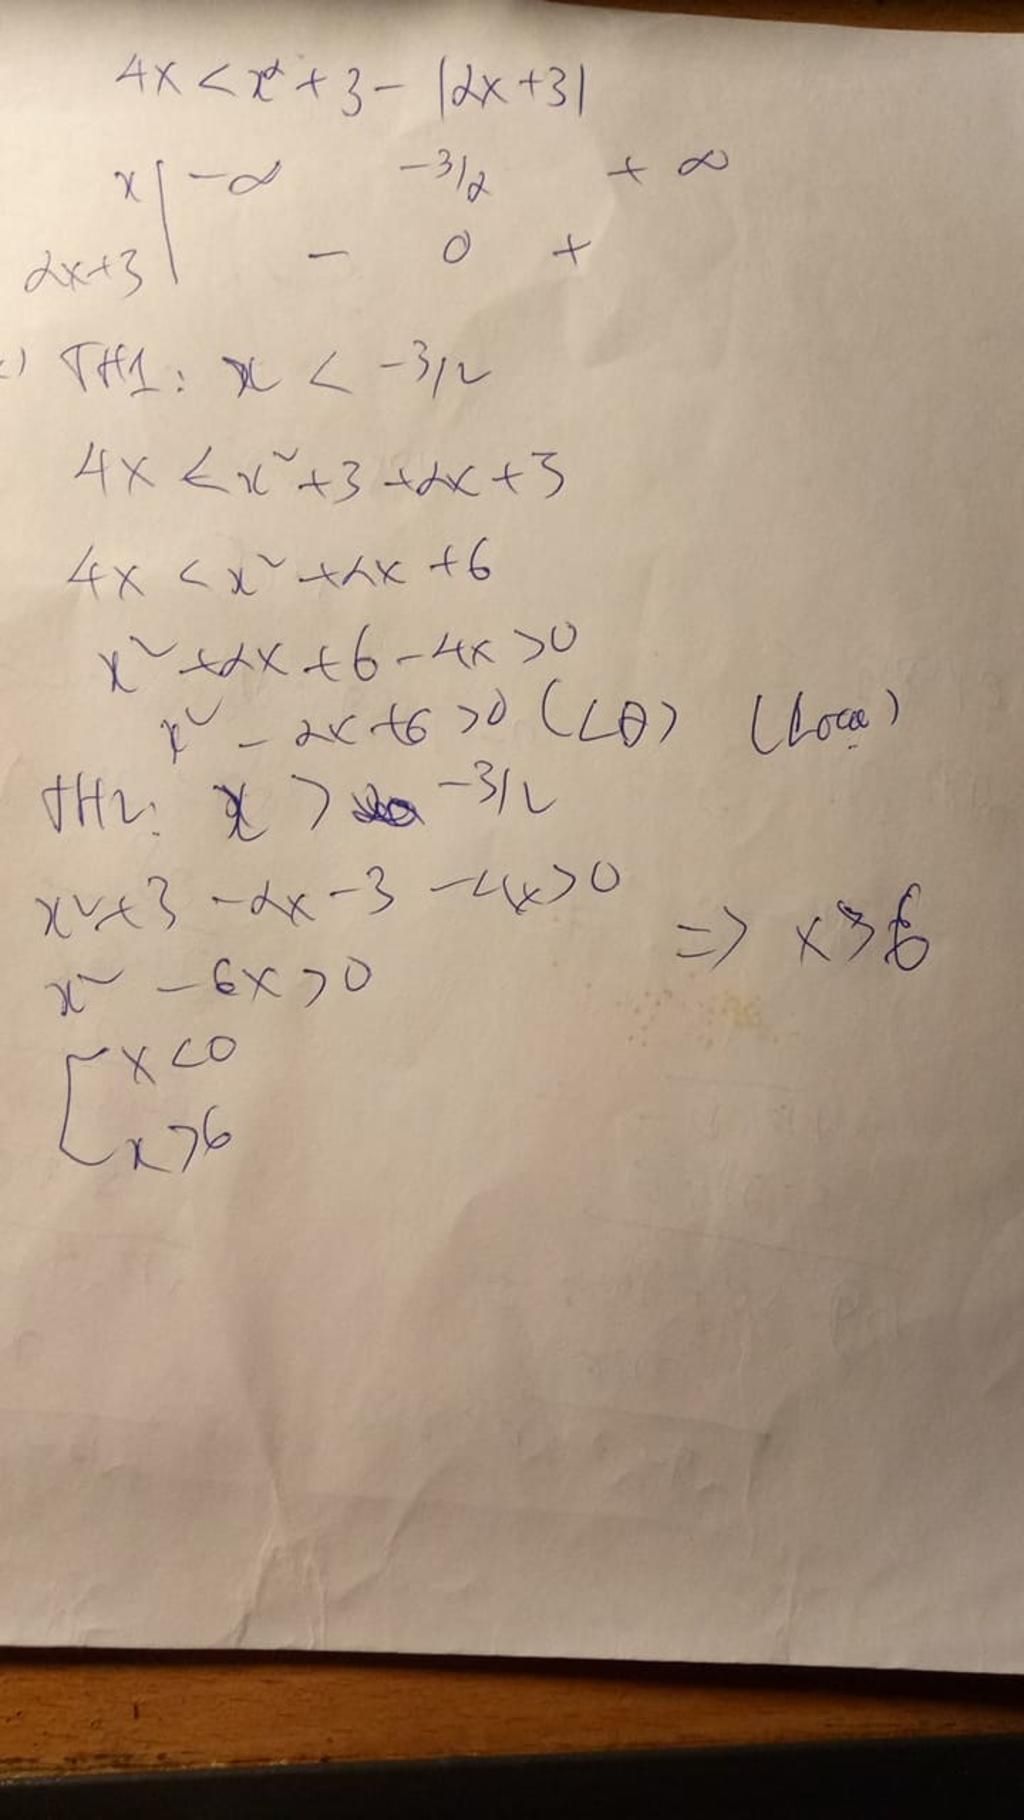 4x < x² + 3 - |2x + 3|
x | -∞ -3/2 + ∞
2x+3 | - 0 +
TH1: x < -3/2
4x < x² + 3 + 2x + 3
4x < x² + 2x + 6
x² + 2x + 6 - 4x > 0
x² - 2x + 6 > 0 (LĐ) (Loại)
TH2: x > -3/2
x² + 3 - 2x - 3 - 4x > 0
x² - 6x > 0 => x > 6
[ x < 0
x > 6